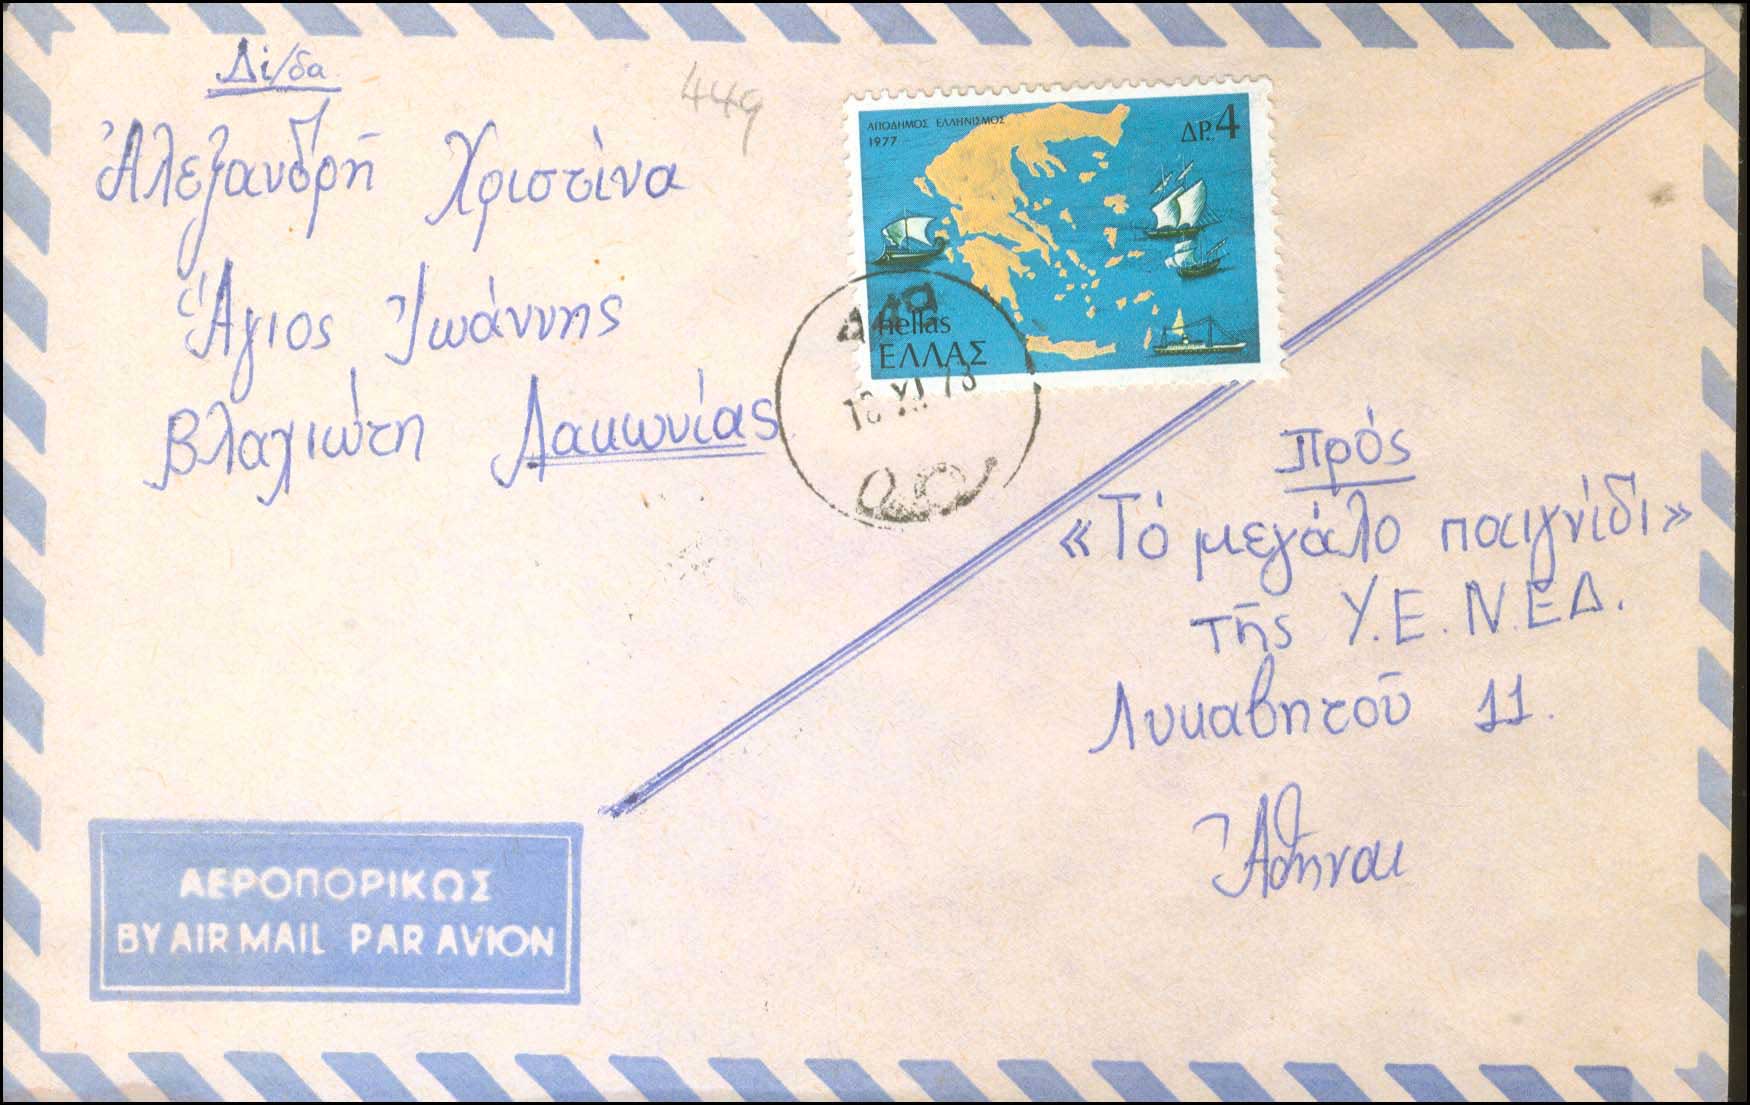 Δι/δα
Ἀλεξανδρῆ Χριστίνα
Ἅγιος Ἰωάννης
Βλαχιώτη Λακωνίας
449
ΑΠΟΔΗΜΟΣ ΕΛΛΗΝΙΣΜΟΣ
1977
ΔΡ. 4
hellas
ΕΛΛΑΣ
449
πρός
«Τό μεγάλο παιχνίδι»
τῆς Υ.Ε.Ν.ΕΔ.
Λυκαβητοῦ 11.
Ἀθῆναι
ΑΕΡΟΠΟΡΙΚΩΣ
BY AIR MAIL PAR AVION